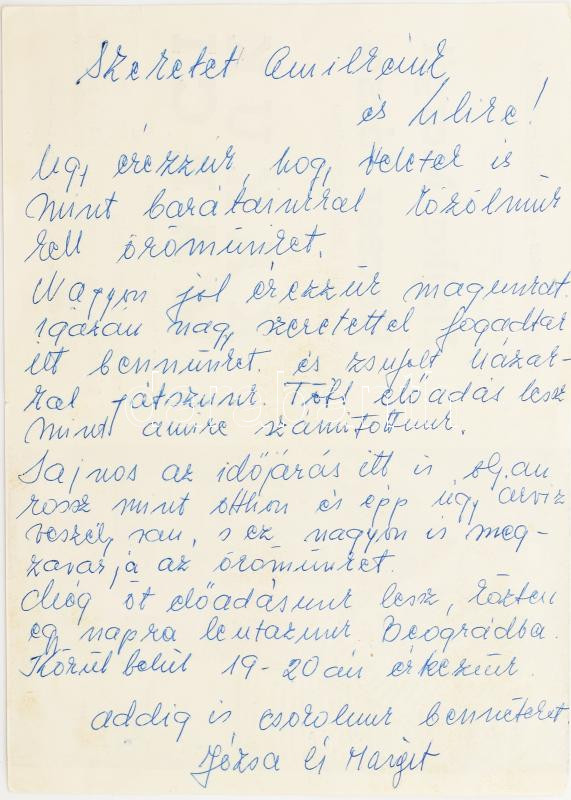 Szeretet Amilkéink
és Lilire!
Úgy érezzük, hogy Veletek is
mint barátainkkal közölnünk
kell örömünket.
Nagyon jól érezzük magunkat.
igazán nagy szeretettel fogadtak
itt bennünket. és zsufolt házak-
kal játszunk. Több előadás lesz
mint amire számítottunk.
Sajnos az időjárás itt is olyan
rossz mint otthon és épp úgy árviz
veszély van, s ez nagyon is meg-
zavarja az örömünket.
Még öt előadásunk lesz, közten
egy napra leutazunk Beográdba.
Körül belül 19-20 án érkezünk.
addig is csokolunk benneteket
Józsa és Margit